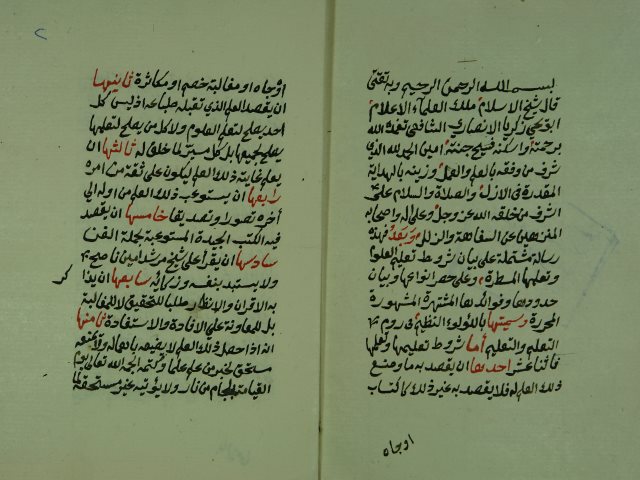 بسم الله الرحمن الرحيم وبه ثقتي
قال شيخ الاسلام ملك العلماء الاعلام
ابو يحيى زكريا الانصاري الشافعي تغمده الله
برحمته واسكنه فسيح جنته امين الحمد لله الذي
شرف من وفقه بالعلم والعمل وزينه بالهداية
المقدرة في الازل والصلاة والسلام على
اشرف من خلقه الله عز وجل وعلى اله واصحابه
المنزهين عن السفاهة والزلل وبعد فهذه
رسالة مشتملة على بيان شروط تعليم العلوم
وتعلمها المسطرة وعلى حصر انواعها وبيان
حدودها وفوائدها المثمرة المشهورة
المحررة وسميتها باللؤلؤ النظيم في روم
التعلم والتعليم اما شروط تعليمها وتعلمها
فاثنا عشر احدها ان يقصد به ما وضع
ذلك العلم له فلا يقصد به غير ذلك كاكتساب
اوجاه
اوجاه او مغالبة خصم او مكاثرة ثانيها
ان يقصد العلم الذي تقبله طباعه اذ ليس كل
احد يصلح لتعلم العلوم ولا كل من يصلح لتعلمها
يصلح لجميعها بل كل ميسر لما خلق له ثالثها ان
يعلم غاية ذلك العلم ليكون على ثقة من امره
رابعها ان يستوعب ذلك العلم من اوله الى
اخره تصورا وتصديقا خامسها ان يقصد
فيه الكتب الجيدة المستوعبة لجملة الفن
سادسها ان يقرأ على شيخ مرشد امين ناصح
ولا يستبد بنفسه وذكائه سابعها ان يذاكر
به الاقران والانظار طلبا للتحقيق لا للمغالبة
بل للمعاونة على الافادة والاستفادة ثامنها
انه اذا حصل ذلك العلم لا يضيعه باهماله ولا يمنعه
مستحقه لخبر من علم علما وكتمه الجمه الله تعالى يوم
القيامة بلجام من نار ولا يؤتيه غير مستحقه لما